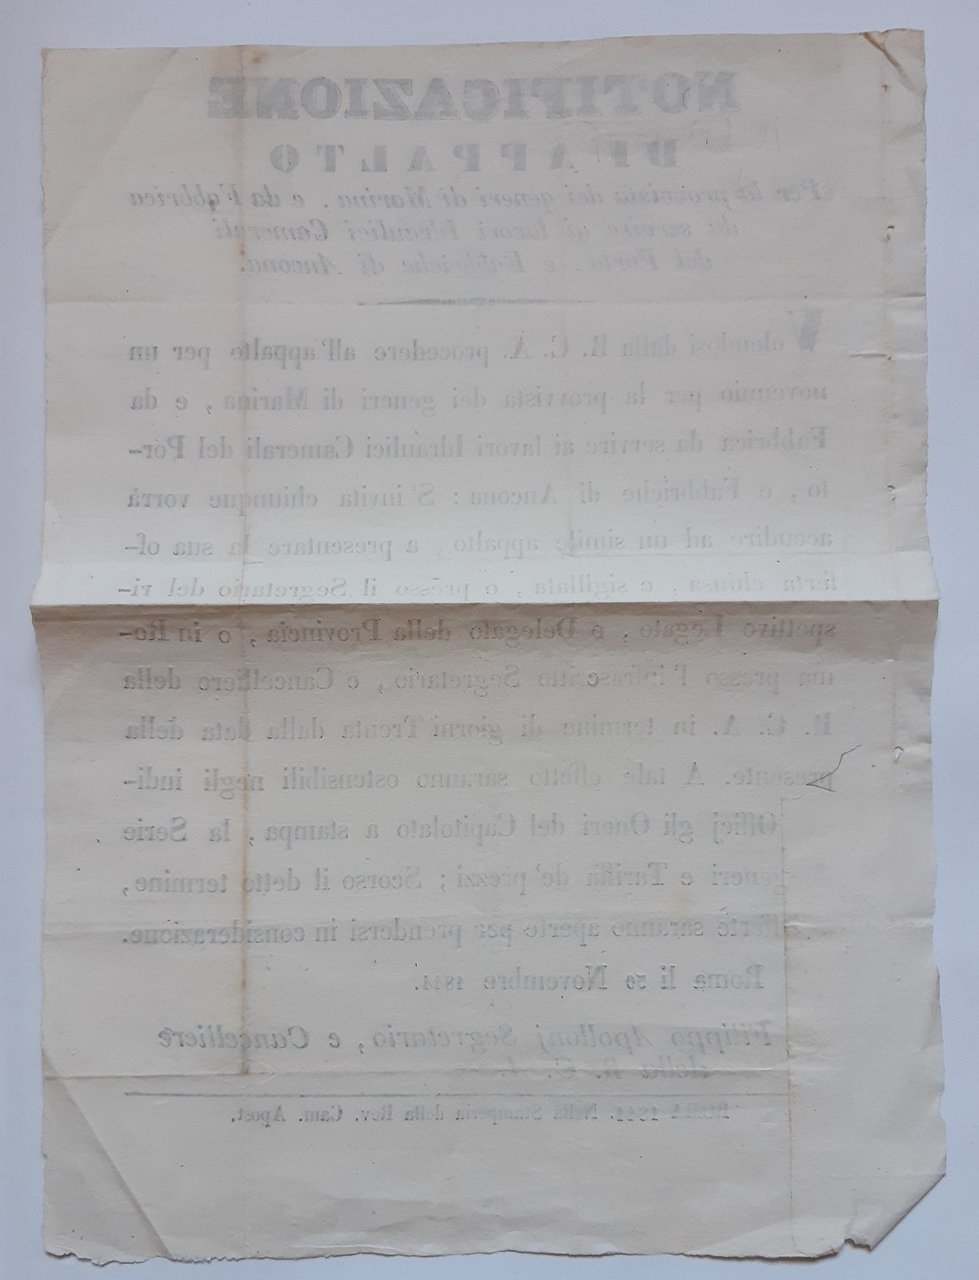 NOTIFICAZIONE
DI APPALTO
Per la provvista dei generi di Marina, e da Fabbrica
da servire ai lavori Idraulici Camerali
del Porto, e Fabbriche di Ancona.
Volendosi dalla R. C. A. procedere all'appalto per un
novennio per la provvista dei generi di Marina, e da
Fabbrica da servire ai lavori Idraulici Camerali del Por-
to, e Fabbriche di Ancona: S'invita chiunque vorrà
accudire ad un simile appalto, a presentare la sua of-
ferta chiusa, e sigillata, o presso il Segretario del ri-
spettivo Legato, o Delegato della Provincia, o in Ro-
ma presso l'infrascritto Segretario, e Cancelliero della
R. C. A. in termine di giorni Trenta dalla data della
presente. A tale effetto saranno ostensibili negli indi-
Officj gli Oneri del Capitolato a stampa, la Serie
generi e Tariffa de' prezzi; Scorso il detto termine,
offerte saranno aperte per prendersi in considerazione.
Roma li 30 Novembre 1844.
Filippo Apollonj Segretario, e Cancelliere
della R. C. A.
ROMA 1844. Nella Stamperia della Rev. Cam. Apost.